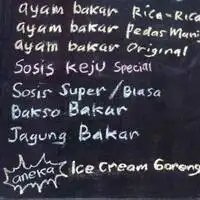 ayam bakar Rica-Rica
ayam bakar Pedas Mani
ayam bakar Original
Sosis Keju Special
Sosis Super / Biasa
Bakso Bakar
Jagung Bakar
aneka Ice Cream Goreng